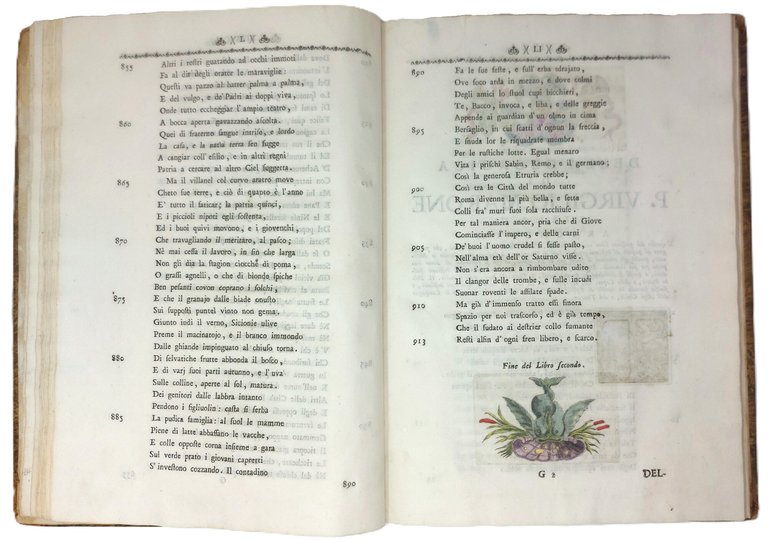 )( L )(
855 Altri i rostri guatando ad occhi immoti
Fa al dir degli orator le maraviglie:
Questi va pazzo al batter palma a palma,
E del vulgo, e de' Padri ai doppi viva,
Onde tutto eccheggiar l'ampio teatro,
860 A bocca aperta gavazzando ascolta.
Quei di fraterno sangue intriso, e lordo
La casa, e la natia terra sen fugge
A cangiar coll' esilio, e in altri regni
Patria a cercare ad altro Ciel soggetta.
865 Ma il villanel col curvo aratro move
Cheto sue terre, e ciò di quanto è l'anno
E' tutto il faticar; la patria quinci,
E i piccioli nipoti egli sostenta,
Ed i buoi quivi movono, e i giovenchi,
870 Che travagliando il meritaro, al pasco;
Nè mai cessa il lavoro, in sin che larga
Non gli dia la stagion ciocchè di poma,
O grassi agnelli, o che di bionde spiche
Ben pesanti covon coprano i solchi,
875 E che il granajo dalle biade onusto
Sui supposti puntel vinto non gema.
Giunto indi il verno, Sicionie ulive
Preme il macinatojo, e il branco immondo
Dalle ghiande impinguato al chiuso torna.
880 Di selvatiche frutte abbonda il bosco,
E di varj suoi parti autunno, e l'uva
Sulle colline, aperte al sol, matura.
Dei genitori dalle labbra intanto
Pendono i figliuolin: casta si serba
885 La pudica famiglia: al suol le mamme
Piene di latte abbassano le vacche,
E colle opposte corna insieme a gara
Sul verde prato i giovani capretti
S' investono cozzando. Il contadino
890
G
)( LI )(
890 Fa le sue feste, e sull' erba sdrajato,
Ove foco arda in mezzo, e dove colmi
Degli amici lo stuol cupi bicchieri,
Te, Bacco, invoca, e liba, e delle greggie
Appende ai guardian d'un olmo in cima
895 Bersaglio, in cui scatti d'ognun la freccia,
E snuda lor le riquadrate membra
Per le rustiche lotte. Egual menaro
Vita i prischi Sabin, Remo, e il germano;
Così la generosa Etruria crebbe;
900 Così tra le Città del mondo tutte
Roma divenne la più bella, e sette
Colli fra' muri suoi sola racchiuse.
Per tal maniera ancor, pria che di Giove
Cominciasse l'impero, e delle carni
905 De' buoi l'uomo crudel si fesse pasto,
Nell' alma età dell' or Saturno visse.
Non s'era ancora a rimbombare udito
Il clangor delle trombe, e sulle incudi
Suonar roventi le affilate spade.
910 Ma già d'immenso tratto essi sinora
Spazio per noi trascorso, ed è già tempo,
Che il sudato ai destrier collo fumante
913 Resti alfin d'ogni fren libero, e scarco.
Fine del Libro secondo.
G 2
DEL-